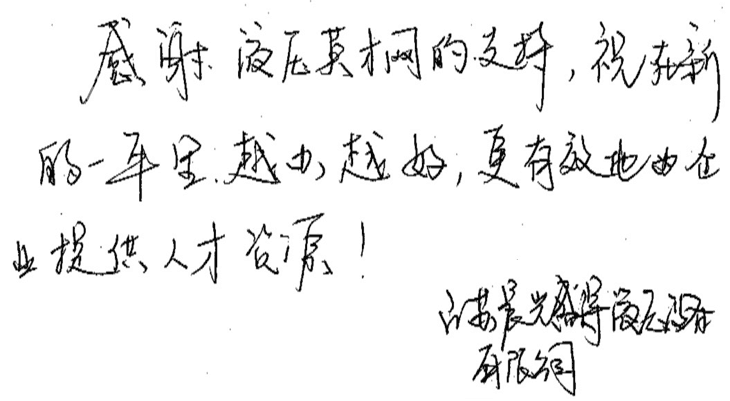 感谢液压英才网的支持，祝在新
的一年里越办越好，更有效地为企
业提供人才资源！
江苏晨光盛得液压设备
有限公司